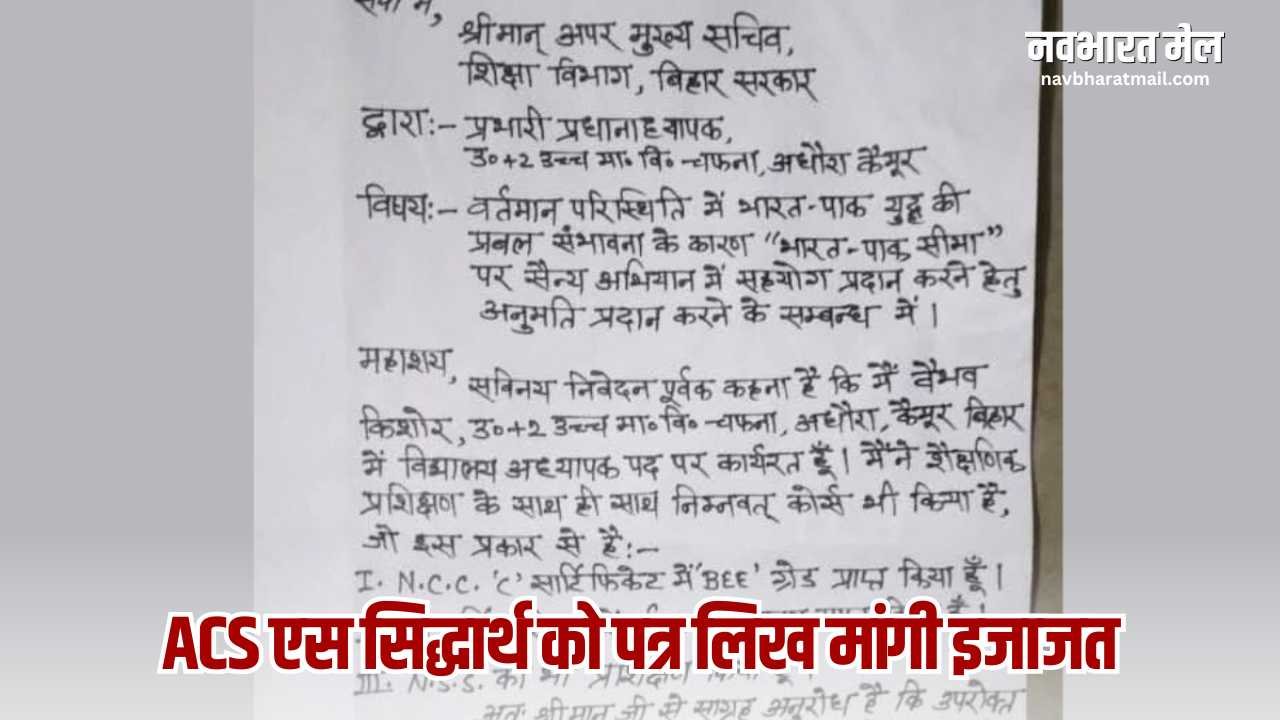 सेवा में,
श्रीमान् अपर मुख्य सचिव,
शिक्षा विभाग, बिहार सरकार
द्वारा:- प्रभारी प्रधानाध्यापक,
उ०+2 उच्च मा० वि० -चफना, अधौरा कैमूर
विषय:- वर्तमान परिस्थिति में भारत-पाक युद्ध की
प्रबल संभावना के कारण "भारत-पाक सीमा"
पर सैन्य अभियान में सहयोग प्रदान करने हेतु
अनुमति प्रदान करने के सम्बन्ध में।
महाशय,
सविनय निवेदन पूर्वक कहना है कि मैं वैभव
किशोर, उ०+2 उच्च मा० वि० -चफना, अधौरा, कैमूर बिहार
में विद्यालय अध्यापक पद पर कार्यरत हूँ। मैंने शैक्षणिक
प्रशिक्षण के साथ ही साथ निम्नवत् कोर्स भी किया है,
जो इस प्रकार से है:-
I. N.C.C. 'C' सार्टिफिकेट में 'BEE' ग्रेड प्राप्त किया हूँ।
III. N.S.S. का भी प्रशिक्षण
अतः श्रीमान जी से साग्रह अनुरोध है कि उपरोक्त
नवभारत मेल
navbharatmail.com
ACS एस सिद्धार्थ को पत्र लिख मांगी इजाजत